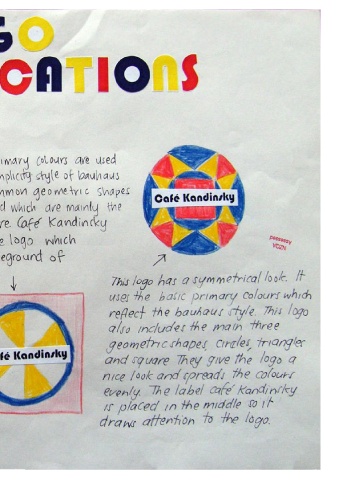 GO
CATIONS
imary colours are used
mplicity style of bauhaus
mmon geometric shapes
d which are mainly the
re Café Kandinsky
e logo which
eground of
Café Kandinsky
This logo has a symmetrical look. It
uses the basic primary colours which
reflect the bauhaus style. This logo
also includes the main three
geometric shapes, circles, triangles
and square. They give the logo a
nice look and spreads the colours
evenly. The label café Kandinsky
is placed in the middle so it
draws attention to the logo.
fé Kandinsky